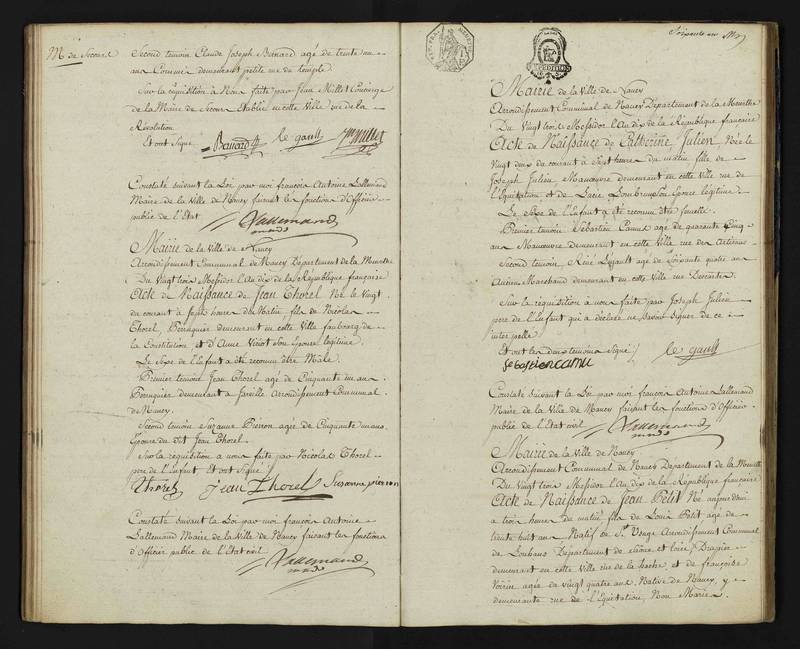 M. de Secours
Second temoin Claude Joseph Bernard agé de trente un
ans Commis demeurant petite rue du temple.
Sur la requisition à Nous faite par Jean Millet Concierge
de la Maison de Secours Etablie en cette Ville rue de la
Révolution
Et ont signé
Bernard le gault J. Millet
Constaté suivant la Loi par moi françois Antoine Lallemand
Maire de la Ville de Nancy faisant les fonctions d'Officier
public de l'Etat civil
Lallemand
Mairie de la Ville de Nancy
Arrondissement Communal de Nancy Département de la Meurthe
Du Vingt trois Messidor l'an dix de la République française
Acte de Naissance de Jean Thorel Né le Vingt
du courant à sept heures du Matin, fils de Nicolas
Thorel, Perruquier demeurant en cette Ville faubourg de
la Constitution, et d'Anne Viriot son Epouse légitime.
Le Sexe de l'Enfant a été reconnu être Mâle.
Premier temoin Jean Thorel agé de Cinquante un ans
Perruquier demeurant à Jarville Arrondissement Communal
de Nancy.
Second temoin Suzanne Pierson agée de Cinquante un ans
Epouse du dit Jean Thorel.
Sur la requisition à nous faite par Nicolas Thorel
pere de l'Enfant Et ont Signé
thorel jean thorel Susanne pierson
Constaté suivant la Loi par moi françois Antoine
Lallemand Maire de la Ville de Nancy faisant les fonctions
d'Officier public de l'Etat civil
Lallemand
Soixante un
Mairie de la Ville de Nancy
Arrondissement Communal de Nancy Département de la Meurthe
Du Vingt trois Messidor l'an dix de la République française
Acte de Naissance de Catherine Julien, Née le
Vingt deux du courant à Sept heures du matin fille de
Joseph Julien Manoeuvre demeurant en cette Ville rue de
l'Equitation, et de Lucie son Epouse légitime.
Le Sexe de l'Enfant a été reconnu être femelle.
Premier temoin Sébastien Camus agé de quarante Cinq
ans Manoeuvre demeurant en cette Ville rue des Artisans.
Second temoin, René Legault agé de Soixante quatre ans
Ancien Marchand demeurant en cette Ville rue Descartes.
Sur la requisition à nous faite par Joseph Julien
pere de l'Enfant qui a déclaré ne savoir signer de ce
interpellé
Et ont les deux temoins signé
Sebastien camu le gault
Constaté suivant la Loi par moi françois Antoine Lallemand
Maire de la Ville de Nancy faisant les fonctions d'Officier
public de l'Etat civil
Lallemand
Mairie de la Ville de Nancy
Arrondissement Communal de Nancy Département de la Meurthe
Du Vingt trois Messidor l'an dix de la République française
Acte de Naissance de Jean Petit Né aujourd'hui
à trois heures du matin fils de Louis Petit agé de
trente huit ans Natif de St Usuge Arrondissement Communal
de Louhans Département de Saone et loire, Drapier
demeurant en cette Ville rue de la hache, et de françoise
Voirin agée de vingt quatre ans Native de Nancy, y
demeurante rue de l'Equitation, Non Mariés.